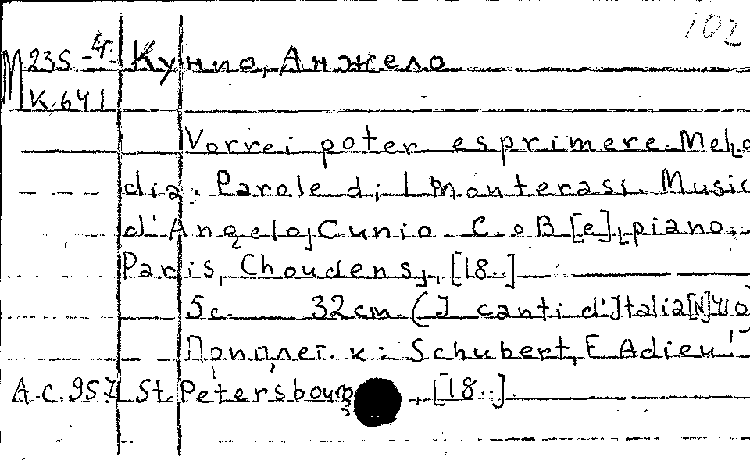 102
M 235-4 Кунио, Анжело
К.641
Vorrei poter esprimere. Melo
dia. Parole di L Monterasi. Music
d'Angelo Cunio. C. o B [e], piano.
Paris, Choudens, [18..]
5c. 32cm. (I canti d'Italia [N]
Приплет. к: Schubert, F. Adieu!
A.C.957 St. Petersbourg, [18..]